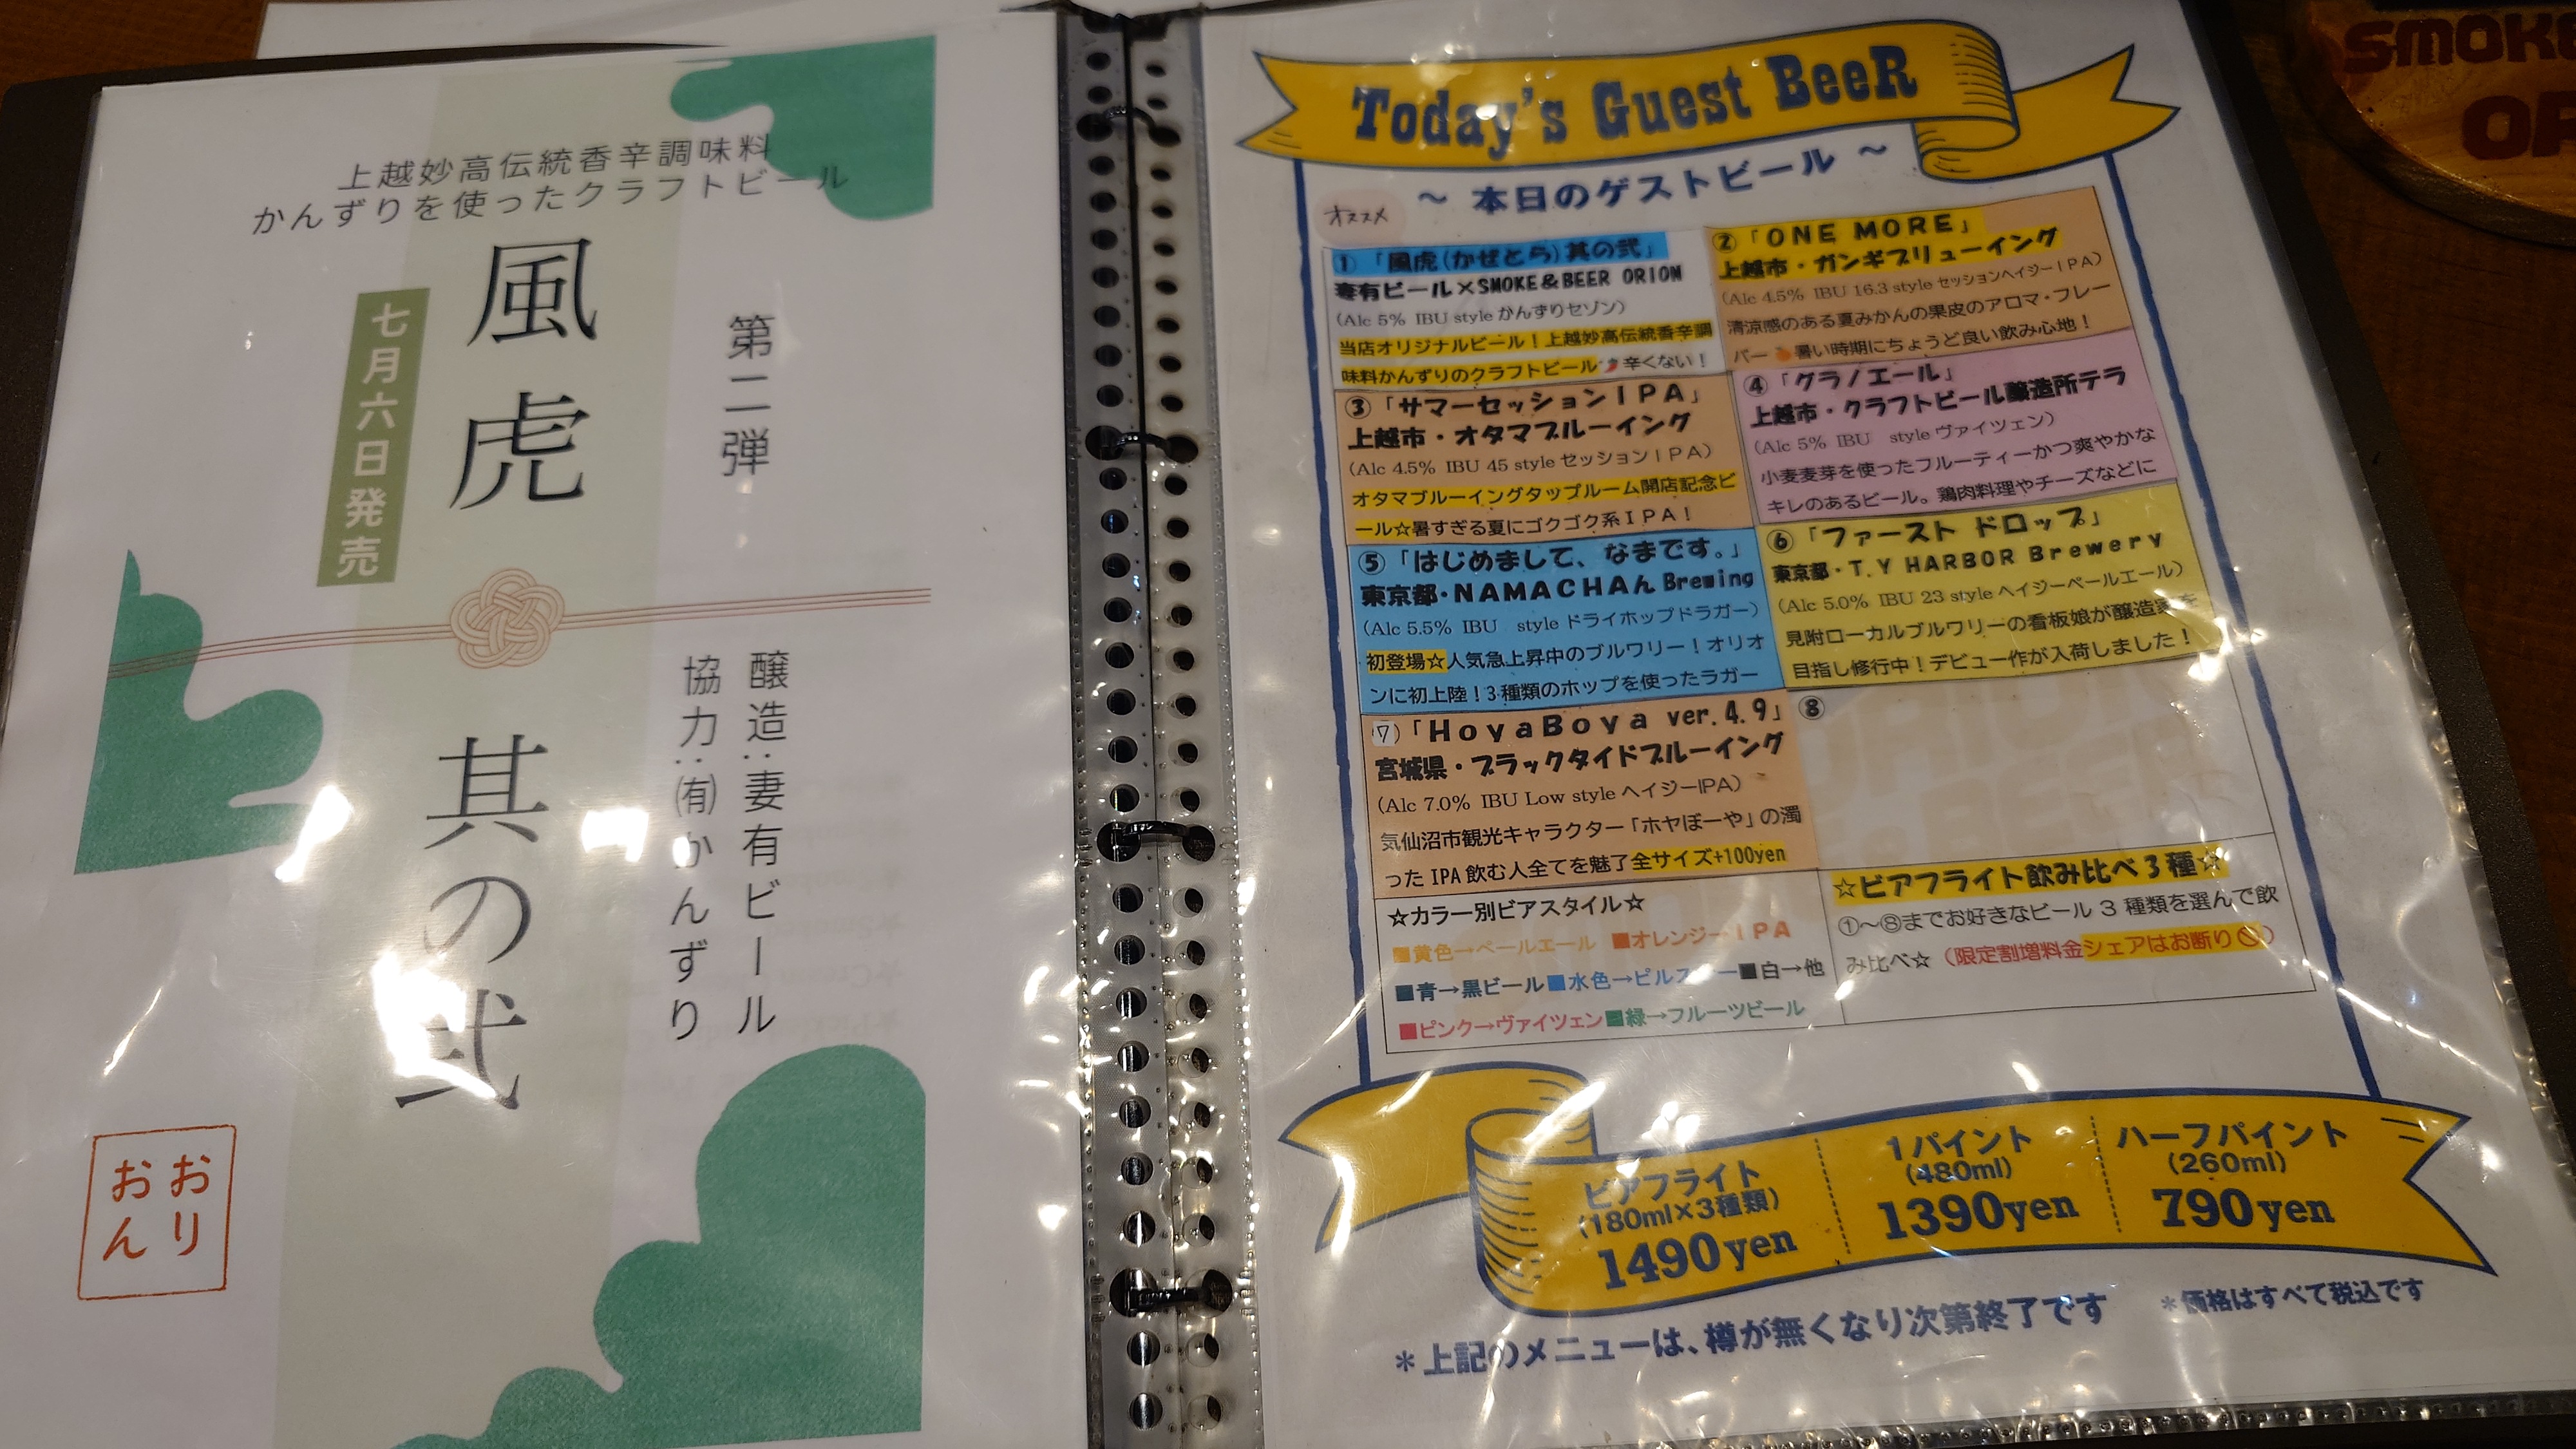 上越妙高伝統香辛調味料
かんずりを使ったクラフトビール
第二弾
風虎 其の弐
七月六日発売
醸造:妻有ビール
協力:㈲かんずり
おり
おん
Today's Guest BeeR
～ 本日のゲストビール ～
オススメ
①「風虎(かぜとら)其の弐」
妻有ビール×SMOKE&BEER ORION
(Alc 5% IBU style かんずりセゾン)
当店オリジナルビール！上越妙高伝統香辛調
味料かんずりのクラフトビール🌶辛くない！
②「ONE MORE」
上越市・ガンギブリューイング
(Alc 4.5% IBU 16.3 style セッションヘイジーIPA)
清涼感のある夏みかんの果皮のアロマ・フレー
バー🍊暑い時期にちょうど良い飲み心地！
③「サマーセッションIPA」
上越市・オタマブルーイング
(Alc 4.5% IBU 45 style セッションIPA)
オタマブルーイングタップルーム開店記念ビ
ール☆暑すぎる夏にゴクゴク系IPA！
④「グラノエール」
上越市・クラフトビール醸造所テラ
(Alc 5% IBU style ヴァイツェン)
小麦麦芽を使ったフルーティーかつ爽やかな
キレのあるビール。鶏肉料理やチーズなどに
⑤「はじめまして、なまです。」
東京都・NAMACHAん Brewing
(Alc 5.5% IBU style ドライホップドラガー)
初登場☆人気急上昇中のブルワリー！オリオ
ンに初上陸！3種類のホップを使ったラガー
⑥「ファースト ドロップ」
東京都・T.Y HARBOR Brewery
(Alc 5.0% IBU 23 style ヘイジーペールエール)
見附ローカルブルワリーの看板娘が醸造家を
目指し修行中！デビュー作が入荷しました！
⑦「HoyaBoya ver.4.9」
宮城県・ブラックタイドブルーイング
(Alc 7.0% IBU Low style ヘイジーIPA)
気仙沼市観光キャラクター「ホヤぼーや」の濁
った IPA 飲む人全てを魅了全サイズ+100yen
⑧
☆カラー別ビアスタイル☆
■黄色→ペールエール ■オレンジ→IPA
■青→黒ビール■水色→ピルスナー■白→他
■ピンク→ヴァイツェン■緑→フルーツビール
☆ビアフライト飲み比べ3種☆
①～⑧までお好きなビール 3 種類を選んで飲
み比べ☆（限定割増料金シェアはお断り🚫）
ビアフライト
(180ml×3種類)
1490yen
1パイント
(480ml)
1390yen
ハーフパイント
(260ml)
790yen
＊上記のメニューは、樽が無くなり次第終了です
＊価格はすべて税込です
SMOKE
OR